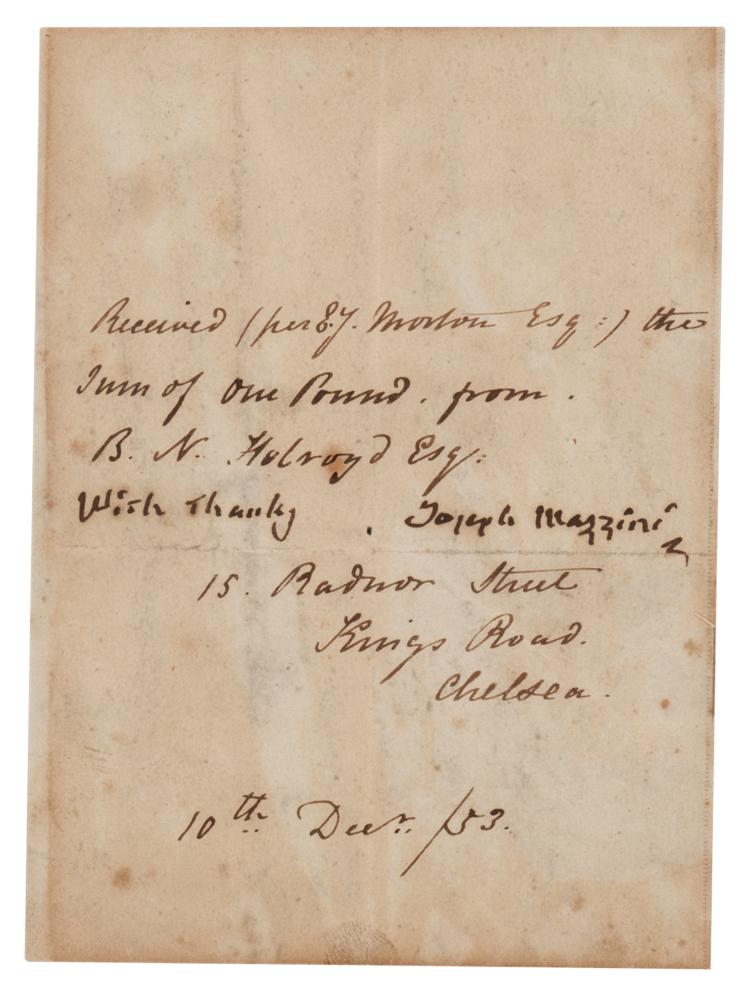 Received (per E.J. Morton Esq:) the
Sum of One Pound. from.
B. N. Holroyd Esq:
With Thanks . Joseph Mazzini
15. Radnor Street
Kings Road.
Chelsea.
10th Decr. /53.